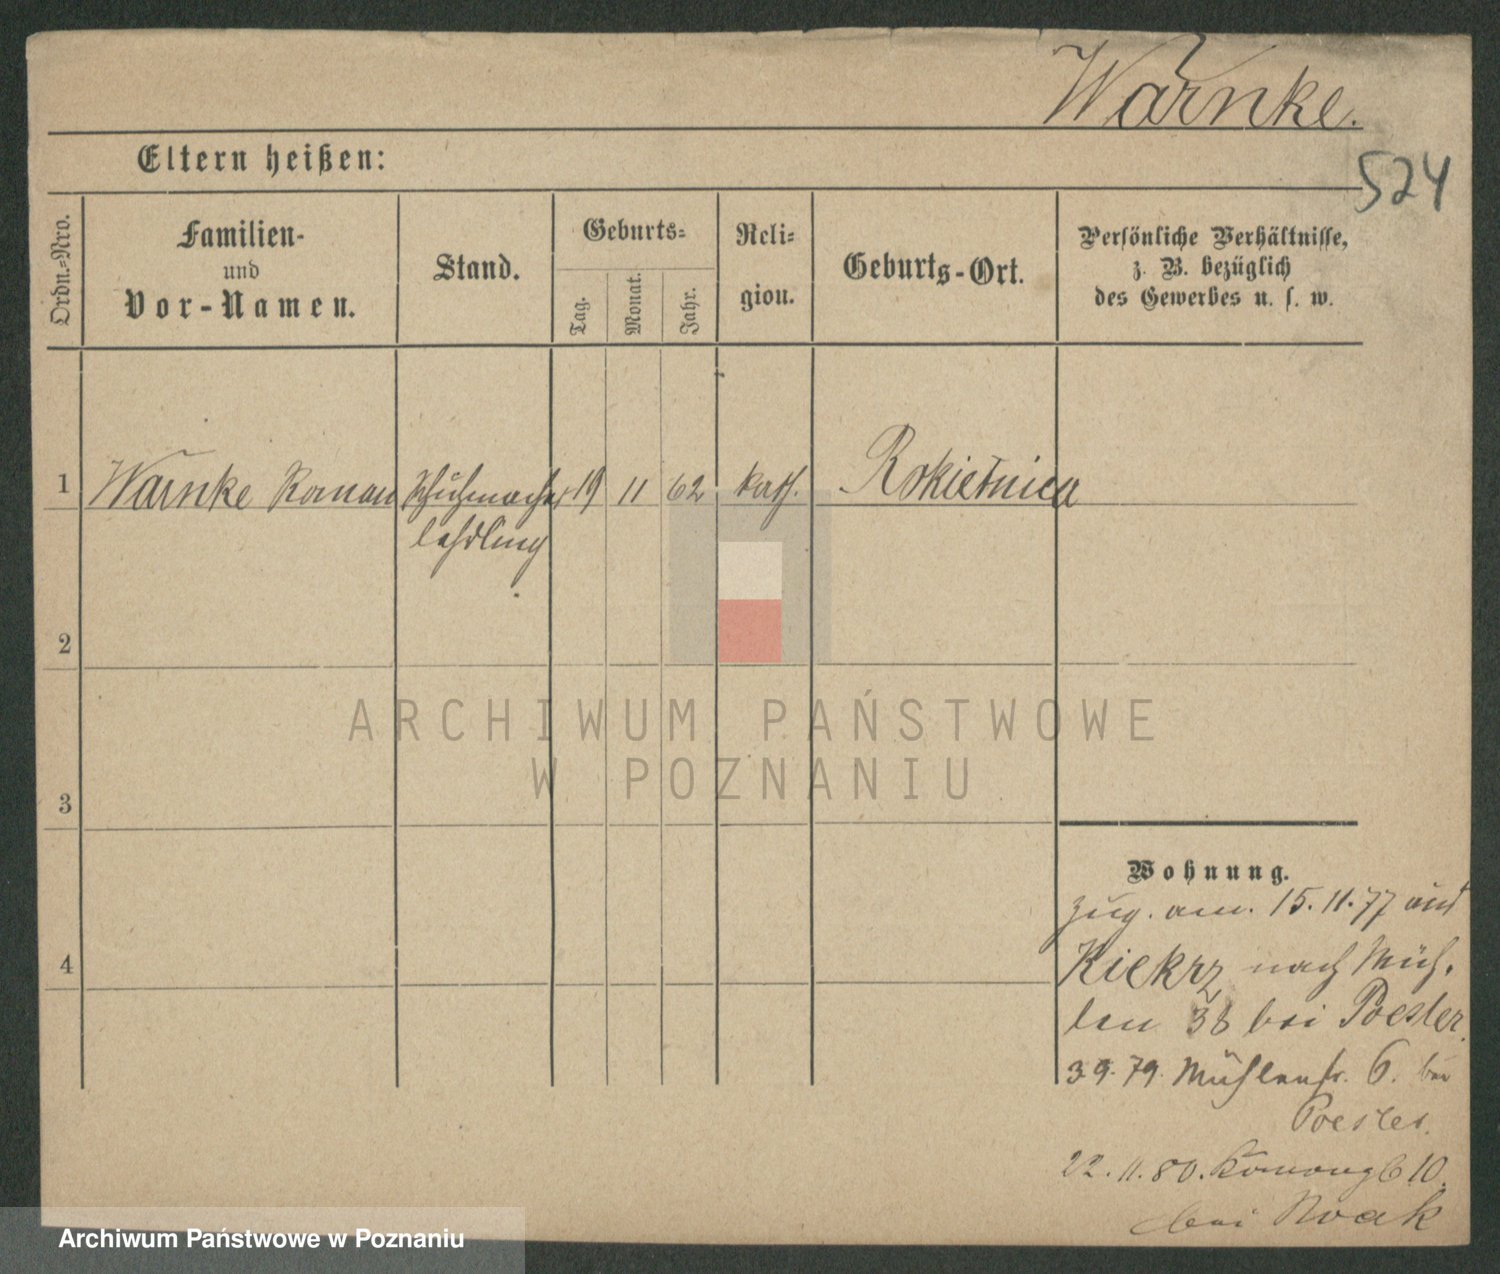 Warnke.
Eltern heißen:
524
Ordn.-Nro.
Familien-
und
Vor-Namen.
Stand.
Geburts-
Tag.
Monat.
Jahr.
Reli-
gion.
Geburts-Ort.
Persönliche Verhältnisse,
z. B. bezüglich
des Gewerbes u. s. w.
1 Warnke Roman Schuhmacher 19 11 62 kath. Rokietnica
lehrling
2
3
4
ARCHIWUM PAŃSTWOWE
W POZNANIU
Wohnung.
zug. am. 15.11.77 aus
Kiekrz nach Müh-
len 38 bei Poesler.
3 9. 79. Mühlenstr. 6. bei
Poesler.
22. 11. 80. 10.
bei Noak
Archiwum Państwowe w Poznaniu